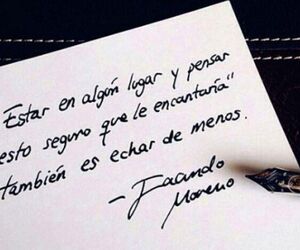 Estar en algún lugar y pensar
esto seguro que le encantaría"
también es echar de menos.
- Facundo
Moreno